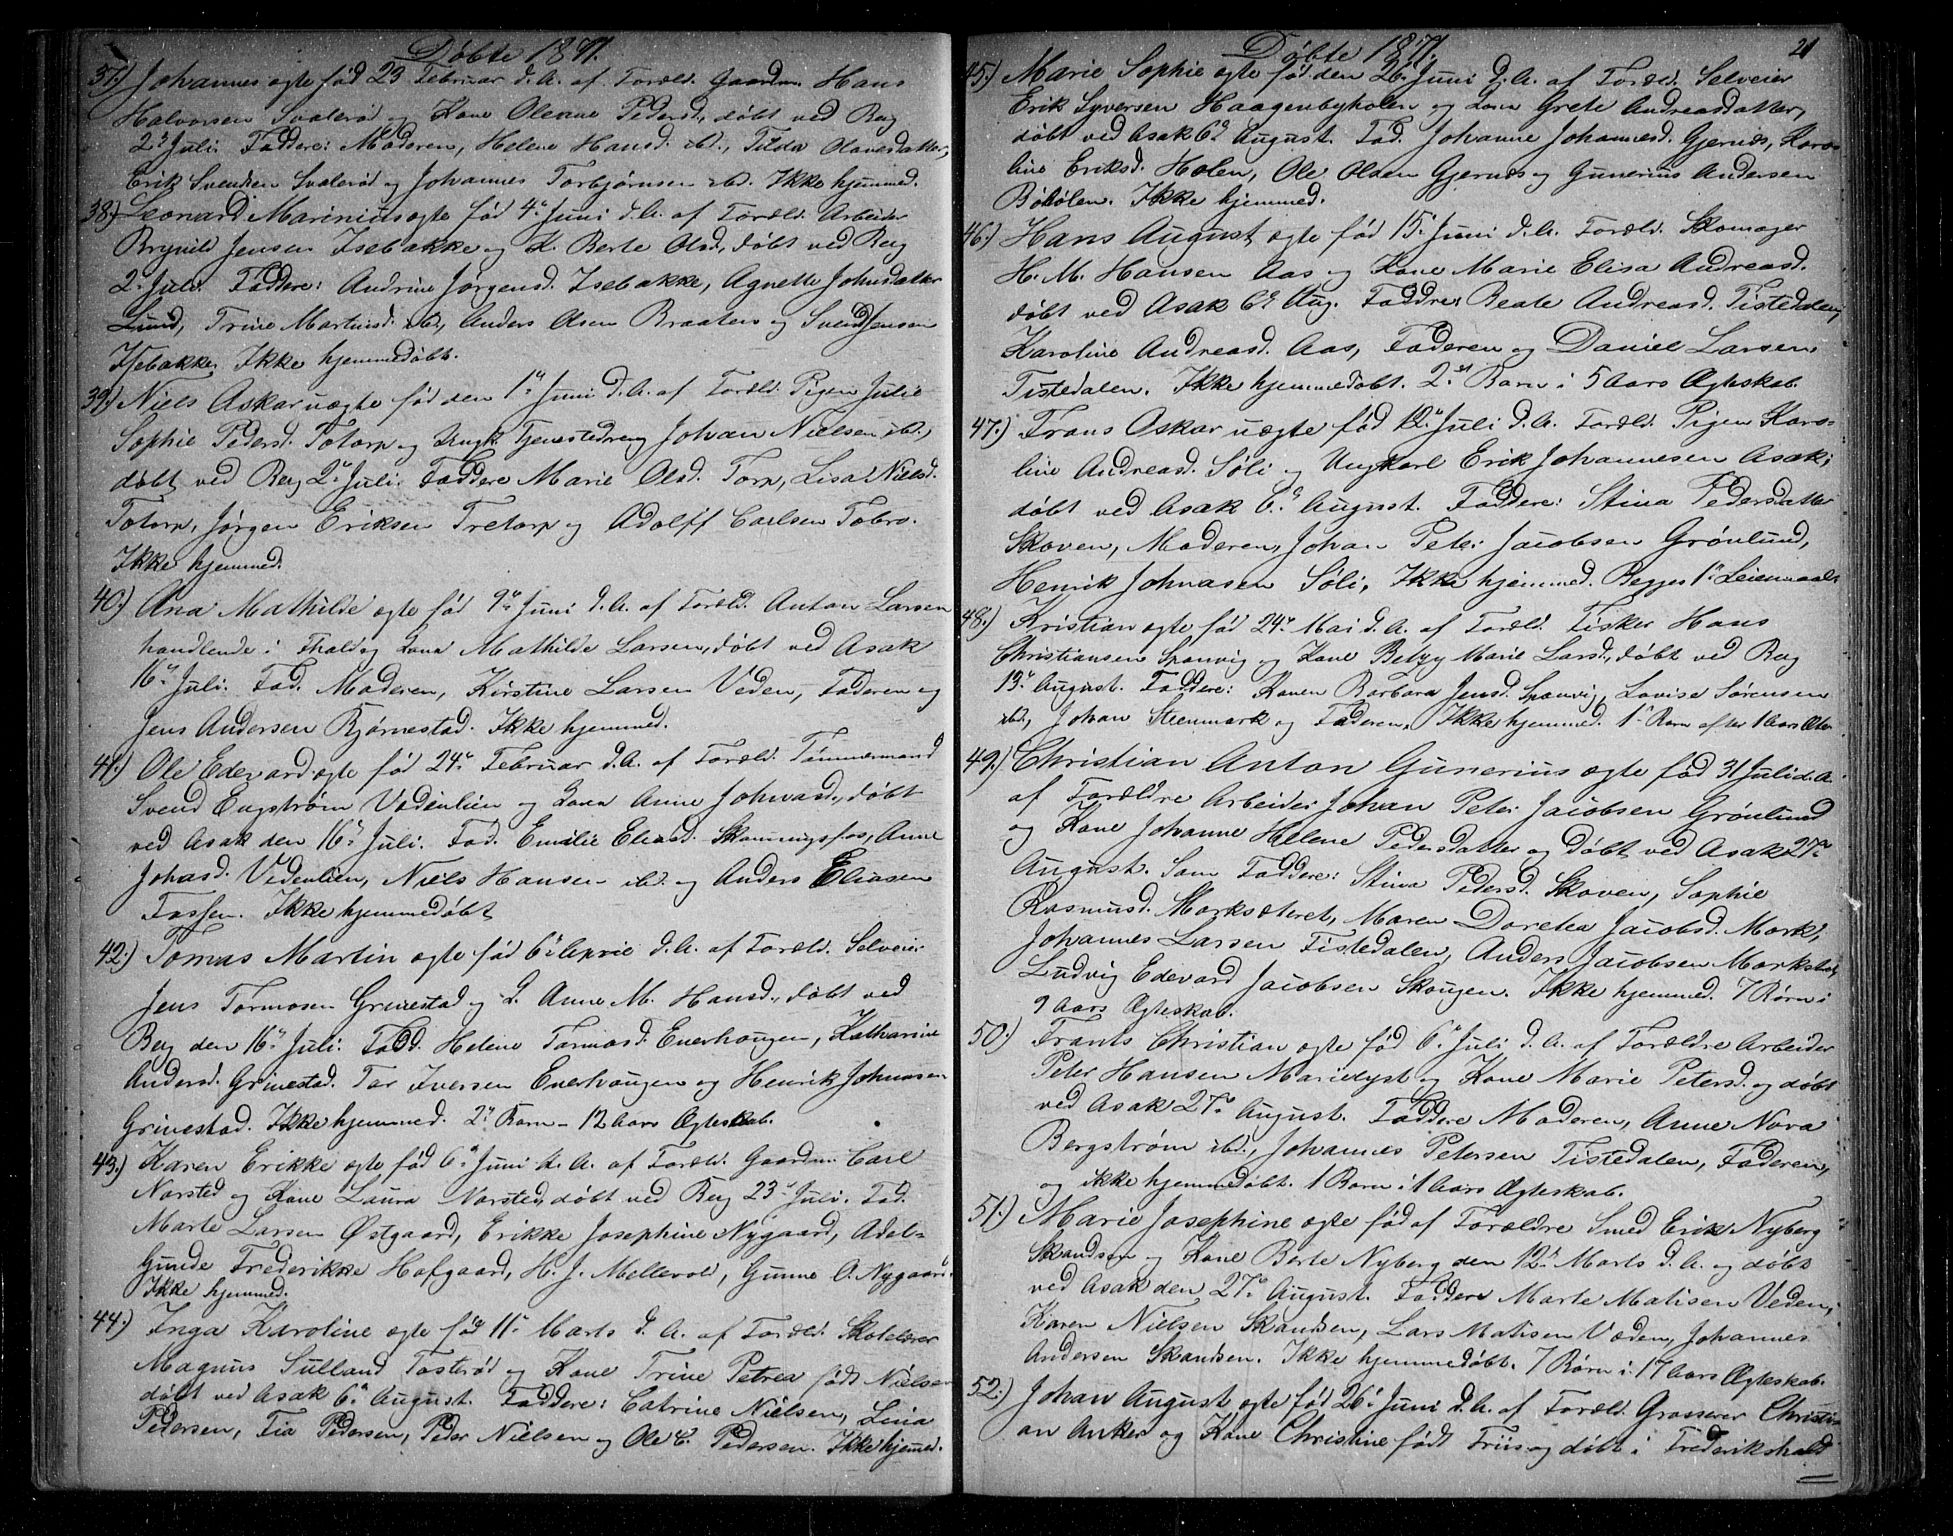 Døbte 1871.
37.) Johannes ægte fød 23 Februar d. A. af Foræld. Gaardm. Hans
Halvorsen Svalerød og Kone Olerne Pedersd., døbt ved Berg
2den Juli. Faddere: Moderen, Helene Hansd. ibd., Tilda Olavesdatter,
Erik Svendsen Svalerød og Johannes Torbjørnsen ibd. Ikke hjemmed.
38.) Leonard Marinius ægte fød 4de Juni d. A. af Foræld. Arbeider
Brynild Jensen Isebakke og K. Berte Olsd., døbt ved Berg
2. Juli. Faddere: Andrine Jørgensd. Isebakke, Agnette Johnsdatter
Lund, Trine Martinsd. ibd., Anders Olsen Braaten og Svend Jensen
Isebakke. Ikke hjemmedøbt.
39.) Niels Askar uægte fød den 1ste Juni d. A. af Foræld. Pigen Julie
Sophie Pedersd. Totorp og Ungk. Tjenestedreng Johan Nielsen ibd.,
døbt ved Berg 2den Juli. Faddere Marie Olsd. Torp, Lisa Nielsd.
Totorp, Jørgen Eriksen Tretorp og Adolff Carlsen Tobro.
Ikke hjemmed.
40.) Ana Mathilde ægte fød 9de Juni d. A. af Foræld. Anton Larsen
handlende i Fhald og Kona Mathilde Larsen, døbt ved Asak
16de Juli. Fad. Moderen, Kirstine Larsen Veden, Faderen og
Jens Andersen Bjørnestad. Ikke hjemmed.
41.) Ole Edevard ægte fød 24de Februar d. A. af Foræld. Tømmermand
Svend Engstrøm Vedenlien og Kona Anne Johnasd., døbt
ved Asak den 16de Juli. Fad. Emilie Eliasd. Skonningsfos, Anne
Johasd. Vedenlien, Niels Hansen ibd. og Anders Eliasen
Fossen. Ikke hjemmedøbt
42.) Tomas Martin ægte fød 6te April d. A. af Foræld. Selveier
Jens Tormosen Grinestad og K. Anne M. Hansd., døbt ved
Berg den 16de Juli. Fadd. Helene Tormosd. Enerhougen, Katharine
Andersd. Grinestad. Tor Iversen Enerhougen og Henrik Johnasen
Grinestad. Ikke hjemmed. 2det Barn – 12 Aars Ægteskab.
43.) Karen Erikke ægte fød 6te Juni d. A. af Foræld. Gaardm. Carl
Norsted og Kone Laura Norsted, døbt ved Berg 23de Juli. Fad.
Marte Larsen Østgaard, Erikke Josephine Nygaard, Adel-
gunde Frederikke Hofgaard, H. J. Mellevold, Gunne O. Nygaard.
Ikke hjemmed.
44.) Inga Karoline ægte fød 11te Marts d. A. af Foræld. Skolelærer
Magnus Sulland Tosterød og Kone Trine Petrea født Nielsen
døbt ved Asak 6te August. Faddere: Catrine Nielsen, Lina
Pedersen, Fia Pedersen, Peder Nielsen og Ole C. Pedersen. Ikke hjemmed.
21
Døbte 1871.
45.) Marie Sophie ægte fød den 26. Juni d. A. af Foræld. Selveier
Erik Syversen Haagenbyholen og Kone Grete Andreasdatter,
døbt ved Asak 6te August. Fad. Johanne Johannesd. Gjernes, Karo-
line Eriksd. Holen, Ole Olsen Gjernes og Gunerius Andersen
Bøhølen. Ikke hjemmed.
46.) Hans August ægte fød 15de Juni d. A. Foræld. Skomager
H. M. Hansen Aas og Kone Marie Elisa Andreasd.
døbt ved Asak 6te Aug. Faddre: Beate Andreasd. Tistedalen,
Karoline Andreasd. Aas, Faderen og Daniel Larsen
Tistedalen. Ikke hjemmedøbt. 2det Barn i 5 Aars Ægteskab.
47.) Frans Oskar uægte fød 12te Juli d. A. Foræld. Pigen Karo-
line Andreasd. Søli og Ungkarl Erik Johannesen Asak;
døbt ved Asak 6te August. Faddere: Stina Pedersdatter
Skoven, Moderen, Johan Peter Jacobsen Grønlund,
Henrik Johnasen Søli, Ikke hjemmed. Begges 1ste Leiermaal.
48.) Kristian ægte fød 24de Mai d. A. af Foræld. Fisker Hans
Christiansen Sponvig og Kone Betzy Marie Larsd., døbt ved Berg
13de August. Faddere: Konen Barbara Jensd. Sponvig, Lovise Sørensen
ibd., Johan Steenmark og Faderen. Ikke hjemmed. 1ste Barn efter 1 Aars Ægte
49.) Christian Anton Gunerius ægte fød 31 Juli d. A.
af Forældre Arbeider Johan Peter Jacobsen Grønlund
og Kone Johanne Helene Pedersdatter og døbt ved Asak 27de
August. Som Faddere: Stina Pedersd. Skoven, Sophie
Rasmusd. Marksæteret, Maren Doretea Jacobsd. Mark,
Johannes Larsen Tistedalen, Anders Jacobsen Markstøl,
Ludvig Edevard Jacobsen Skougen. Ikke hjemmed. 7 Børn i
9 Aars Ægteskab.
50.) Frants Christian ægte fød 6te Juli d. A. af Forældre Arbeider
Peter Hansen Marielyst og Kone Marie Petersd. og døbt
ved Asak 27de August. Faddere Moderen, Anne Nora
Bergstrøm ibd., Johannes Petersen Tistedalen, Faderen,
og ikke hjemmedøbt. 1 Barn i 1 Aars Ægteskab.
51.) Marie Josephine ægte fød af Forældre Smed Erik Nyberg
Skandsen og Kone Berte Nyberg den 12te Marts d. A. og døbt
ved Asak den 27de August. Faddere Marte Matisen Veden,
Karen Nielsen Skandsen, Lars Matisen Veden, Johannes
Andersen Skandsen. Ikke hjemmedøbt. 7 Børn i 17 Aars Ægteskab.
52.) Johan August ægte fød 26de Juni d. A. af Foræld. Grosserer Christi-
an Anker og Kone Christine født Friis og døbt i Frederikshald